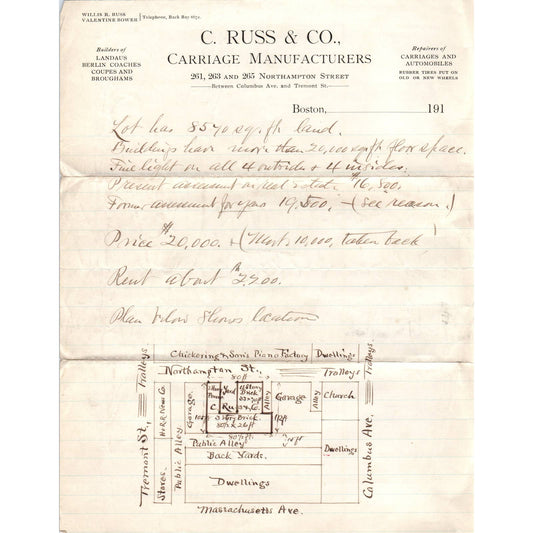 WILLIS R. RUSS
VALENTINE BOWER
Telephone, Back Bay
C. RUSS & CO.,
CARRIAGE MANUFACTURERS
261, 263 AND 265 NORTHAMPTON STREET
Between Columbus Ave. and Tremont St.
Builders of
LANDAUS
BERLIN COACHES
COUPES AND
BROUGHAMS
Repairers of
CARRIAGES AND
AUTOMOBILES
RUBBER TIRES PUT ON
OLD OR NEW WHEELS
Boston, 191
Lot has 8570 sq. ft. land.
Buildings have more than 20,000 sq ft floor space.
Fine light on all 4 outsides & 4 insides.
Present assessment on real estate $16,800.
Former assessment for years 19,500. (See reason.)
Price $20,000. (Mort. 10,000, taken back)
Rent about $2,700.
Plan below shows location
Chickering & Sons Piano Factory
Dwellings
Northampton St.,
Trolleys
80 ft
Tremont St,
Trolleys
Stores.
Public Alley
Garage.
Yard
Brick
C. Russ & Co.
3 Story Brick.
Alley
Garage
Alley
Church
Public Alley
Back Yards.
Dwellings
Dwellings
Massachusetts Ave.
Columbus Ave.
Trolleys